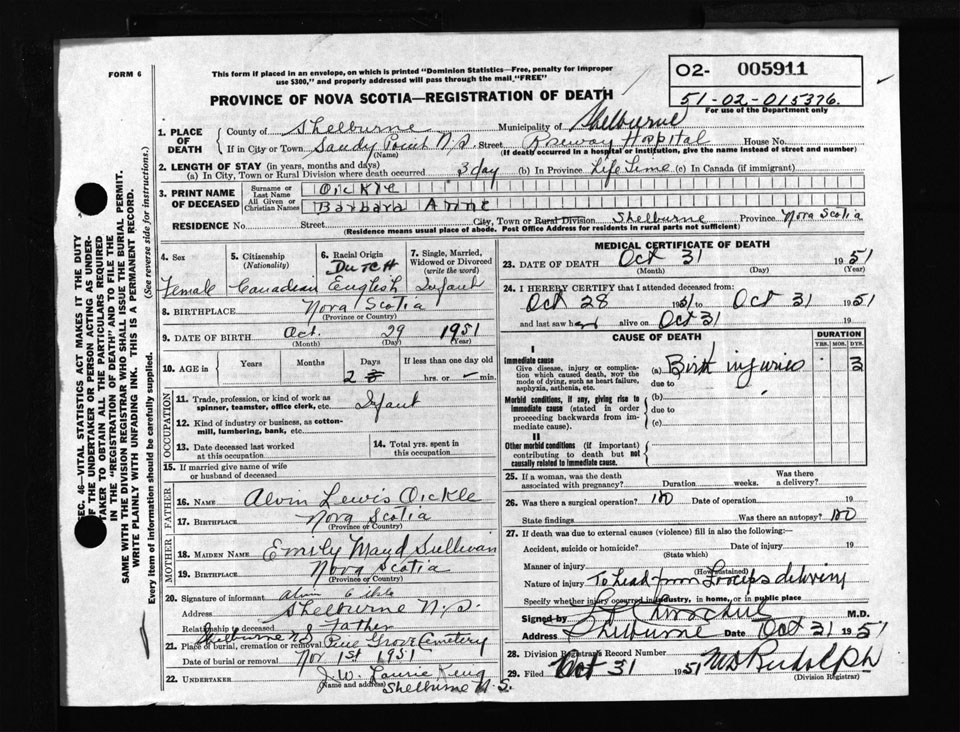 FORM 6
This form if placed in an envelope, on which is printed "Dominion Statistics—Free, penalty for improper
use $300," and properly addressed will pass through the mail "FREE"
O2- 005911
51-02-015376.
For use of the Department only
PROVINCE OF NOVA SCOTIA—REGISTRATION OF DEATH
1. PLACE OF DEATH
County of Shelburne Municipality of Shelburne
If in City or Town Sandy Point N.S. Street Roseway Hospital House No.
(Name) (If death occurred in a hospital or institution, give the name instead of street and number)
2. LENGTH OF STAY (in years, months and days)
(a) In City, Town or Rural Division where death occurred 3 day (b) In Province Life Time (c) In Canada (if immigrant)
3. PRINT NAME OF DECEASED
Surname or Last Name Oickle
All Given or Christian Names Barbara Anne
RESIDENCE No. Street City, Town or Rural Division Shelburne Province Nova Scotia
(Residence means usual place of abode. Post Office Address for residents in rural parts not sufficient)
4. Sex
Female
5. Citizenship (Nationality)
Canadian
6. Racial Origin
Dutch
English
7. Single, Married, Widowed or Divorced (write the word)
Infant
8. BIRTHPLACE Nova Scotia
(Province or Country)
9. DATE OF BIRTH Oct. 29 1951
(Month) (Day) (Year)
10. AGE in Years Months Days If less than one day old
2 hrs. or min.
OCCUPATION
11. Trade, profession, or kind of work as
spinner, teamster, office clerk, etc. Infant
12. Kind of industry or business, as cotton-
mill, lumbering, bank, etc.
13. Date deceased last worked
at this occupation
14. Total yrs. spent in
this occupation
15. If married give name of wife
or husband of deceased
FATHER
16. NAME Alvin Lewis Oickle
17. BIRTHPLACE Nova Scotia
(Province or Country)
MOTHER
18. MAIDEN NAME Emily Maud Sullivan
19. BIRTHPLACE Nova Scotia
(Province or Country)
20. Signature of informant Alvin Oikle
Address Shelburne N.S.
Relationship to deceased Father
Shelburne NS
21. Place of burial, cremation or removal Pine Grove Cemetery
Date of burial or removal Nov 1st 1951
22. UNDERTAKER J.W. Laurie King
(Name and address) Shelburne N.S.
MEDICAL CERTIFICATE OF DEATH
23. DATE OF DEATH Oct 31 1951
(Month) (Day) (Year)
24. I HEREBY CERTIFY that I attended deceased from:
Oct 28 1951 to Oct 31 1951
and last saw her alive on Oct 31 19
CAUSE OF DEATH
DURATION
YRS. MOS. DYS.
I
Immediate cause
Give disease, injury or complica-
tion which caused death, nor the
mode of dying, such as heart failure,
asphyxia, asthenia, etc.
(a) Birth injuries 3
due to
Morbid conditions, if any, giving rise to
immediate cause (stated in order
proceeding backwards from im-
mediate cause).
(b)
due to
(c)
II
Other morbid conditions (if important)
contributing to death but not
causally related to immediate cause.
25. If a woman, was the death
associated with pregnancy? Duration weeks. Was there a delivery?
26. Was there a surgical operation? no Date of operation 19
State findings Was there an autopsy? no
27. If death was due to external causes (violence) fill in also the following:—
Accident, suicide or homicide? Date of injury 19
(State which)
Manner of injury
(How sustained)
Nature of injury To head from forceps delivery
Specify whether injury occurred in industry, in home, or in public place
Signed by M.D.
Address Shelburne Date Oct 31 1951
28. Division Registrar's Record Number
29. Filed Oct 31 1951 Rudolph
(Division Registrar)
SEC. 46—VITAL STATISTICS ACT MAKES IT THE DUTY
OF THE UNDERTAKER OR PERSON ACTING AS UNDER-
TAKER TO OBTAIN ALL THE PARTICULARS REQUIRED
IN THE "REGISTRATION OF DEATH" AND TO FILE THE
SAME WITH THE DIVISION REGISTRAR WHO SHALL ISSUE THE BURIAL PERMIT.
WRITE PLAINLY WITH UNFADING INK. THIS IS A PERMANENT RECORD.
Every item of information should be carefully supplied. (See reverse side for instructions.)